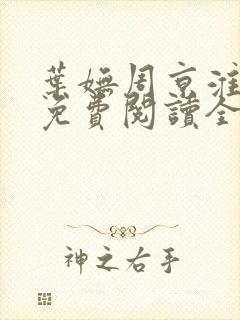 葉嫵周京淮
免費閱讀全
神之右手